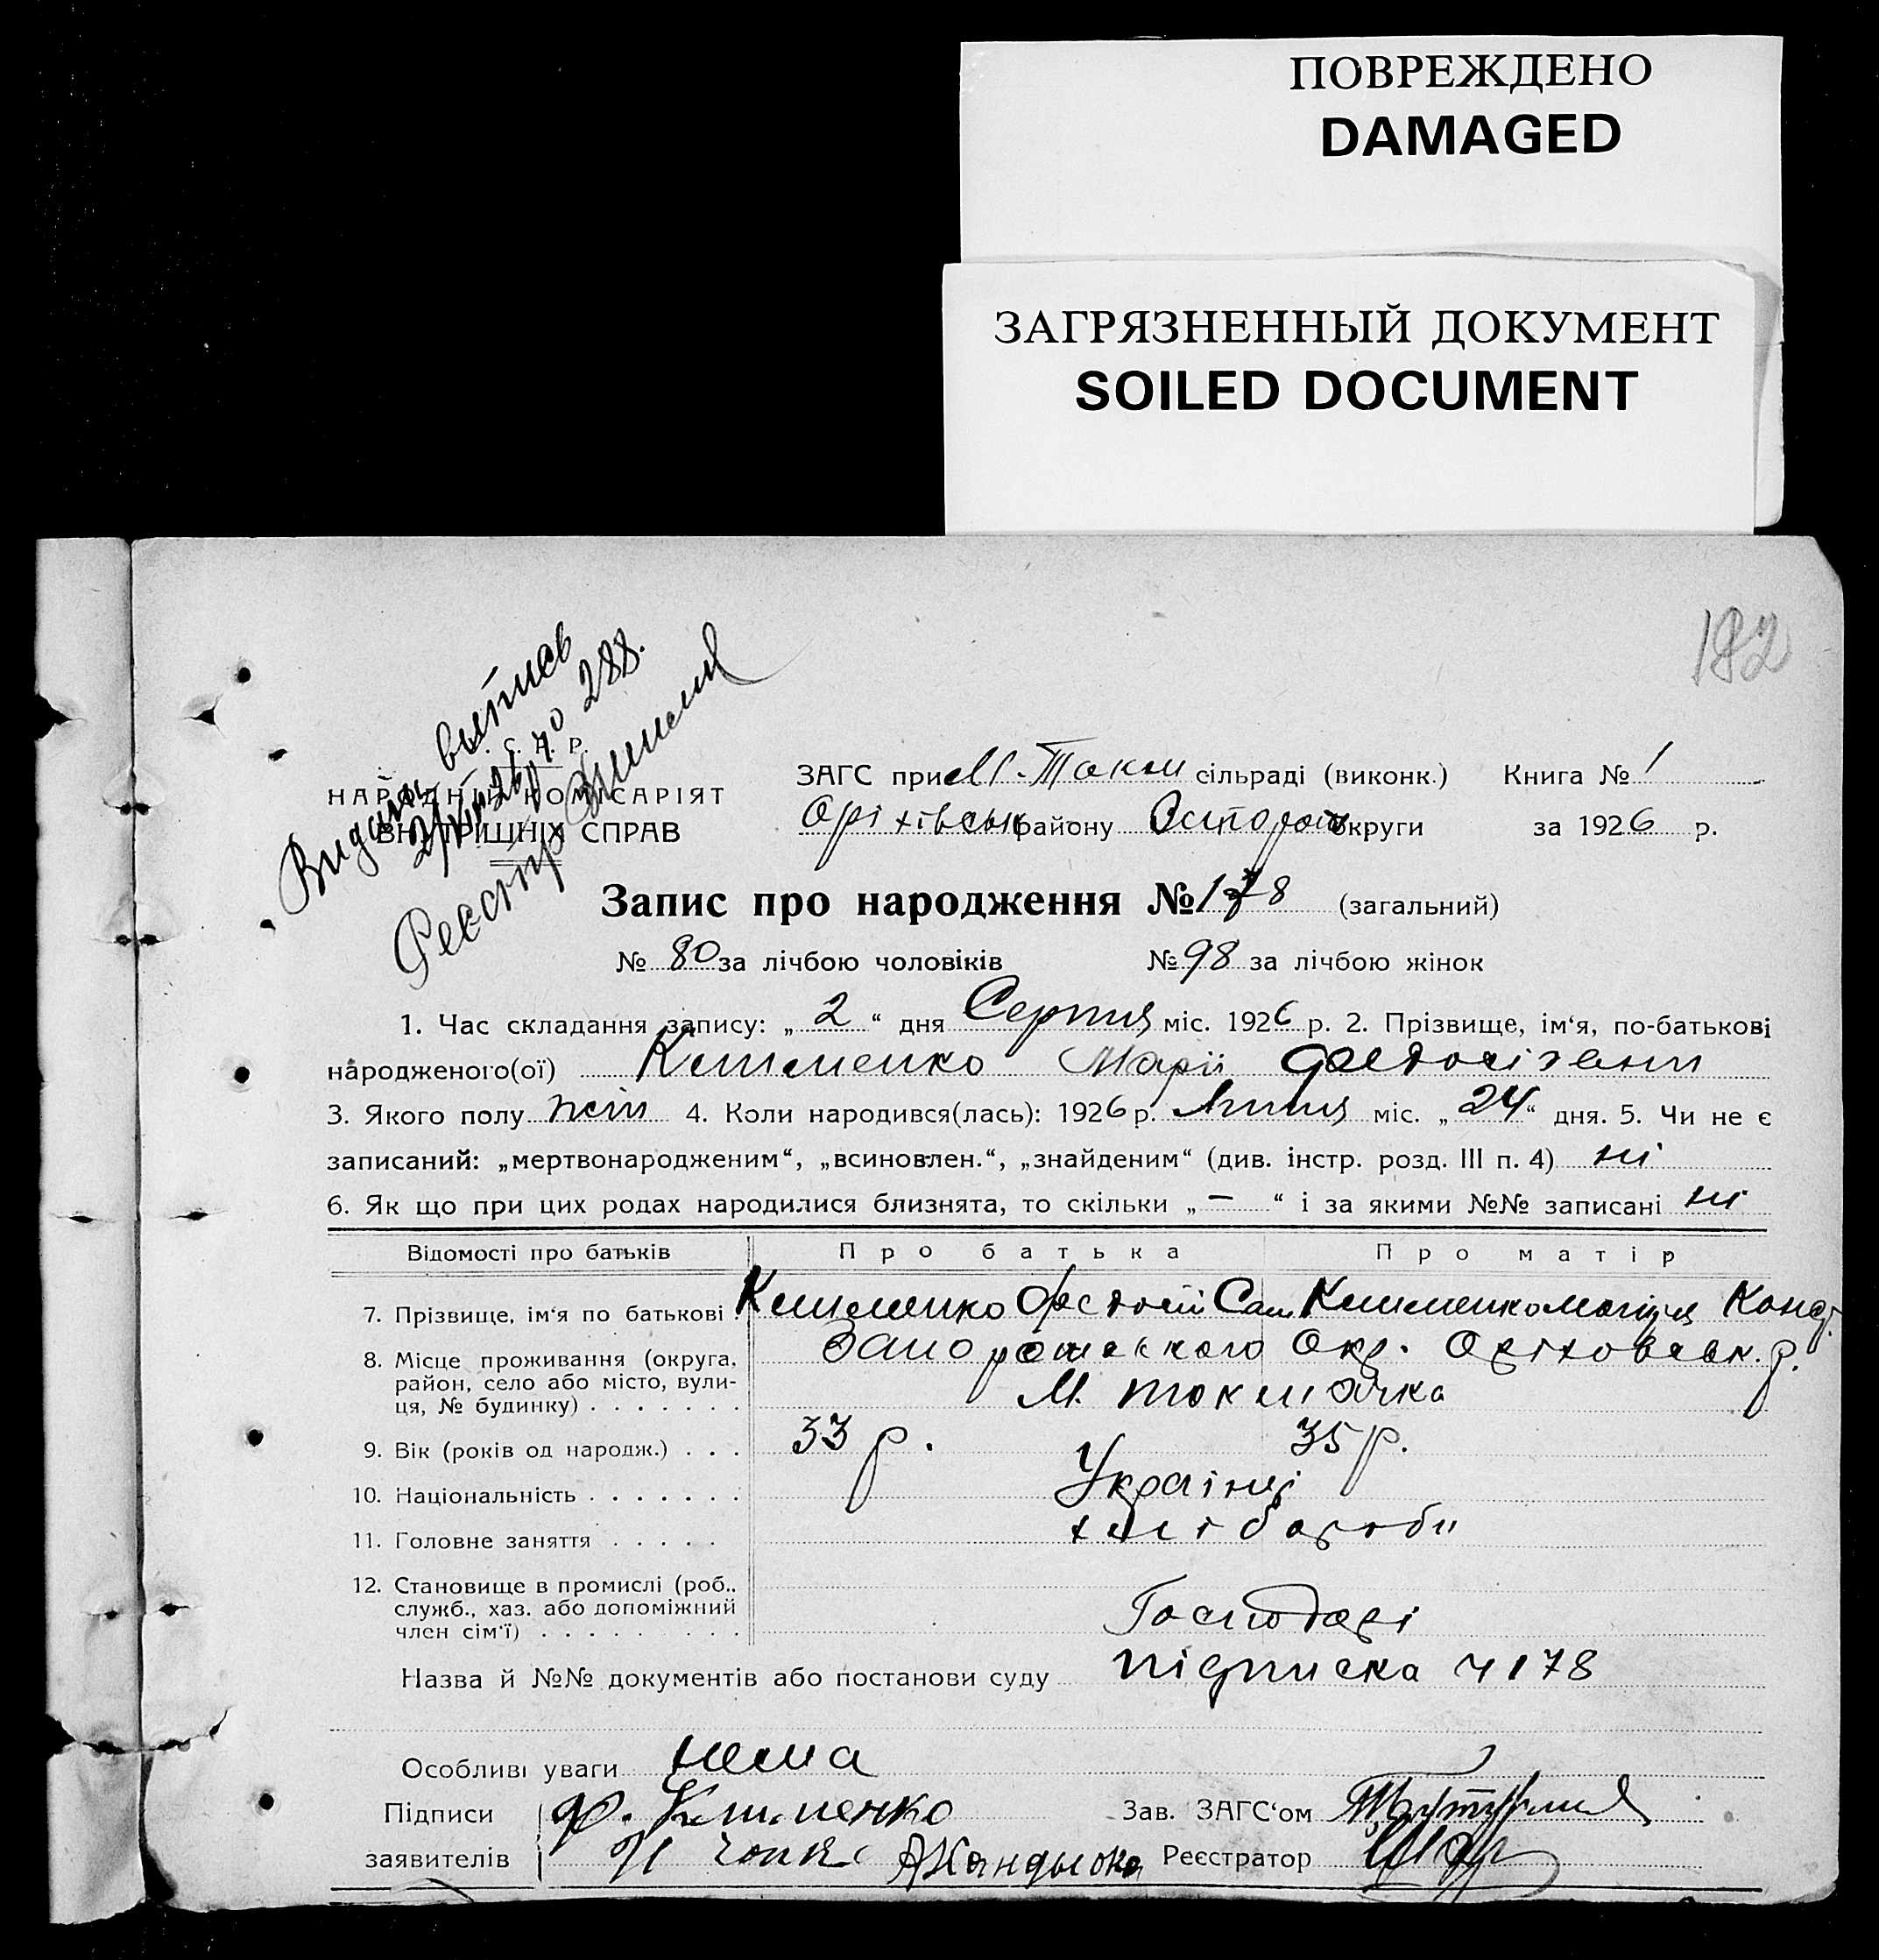 ПОВРЕЖДЕНО
DAMAGED
ЗАГРЯЗНЕННЫЙ ДОКУМЕНТ
SOILED DOCUMENT
182
Видана выпись
288.
Реєстр
С. Р. Р.
НАРОДНІЙ КОМІСАРІЯТ
ВНУТРІШНІХ СПРАВ
ЗАГС при М.-Токм сільраді (виконк.) Книга № 1
Оріхівськ району округи за 1926 р.
Запис про народження № 178 (загальний)
№ 80 за лічбою чоловіків № 98 за лічбою жінок
1. Час складання запису: „ 2 “ дня Серпня міс. 1926 р. 2. Прізвище, ім‘я, по-батькові
народженого(ої) Клименко Марії Федосіевни
3. Якого полу жін 4. Коли народився(лась): 1926 р. Липня міс. „ 24 “ дня. 5. Чи не є
записаний: „мертвонародженим“, „всиновлен.“, „знайденим“ (див. інстр. розд. III п. 4) ні
6. Як що при цих родах народилися близнята, то скільки „ — “ і за якими №№ записані ні
Відомості про батьків Про батька Про матір
7. Прізвище, ім‘я по батькові Клименко Федосій Сам Клименко Конд.
8. Місце проживання (округа, район, село або місто, вулиця, № будинку) Запорожського Окр. Оріховськ. р.
М. токмачка
9. Вік (років од народж.) 33 р. 35 р.
10. Національність Українці
11. Головне заняття хлібороби
12. Становище в промислі (роб., служб., хаз. або допоміжний член сім‘ї) Господарі
Назва й №№ документів або постанови суду підписка ч 178
Особливі уваги нема
Підписи Ф. Клименко Зав. ЗАГС‘ом
заявителів Реєстратор